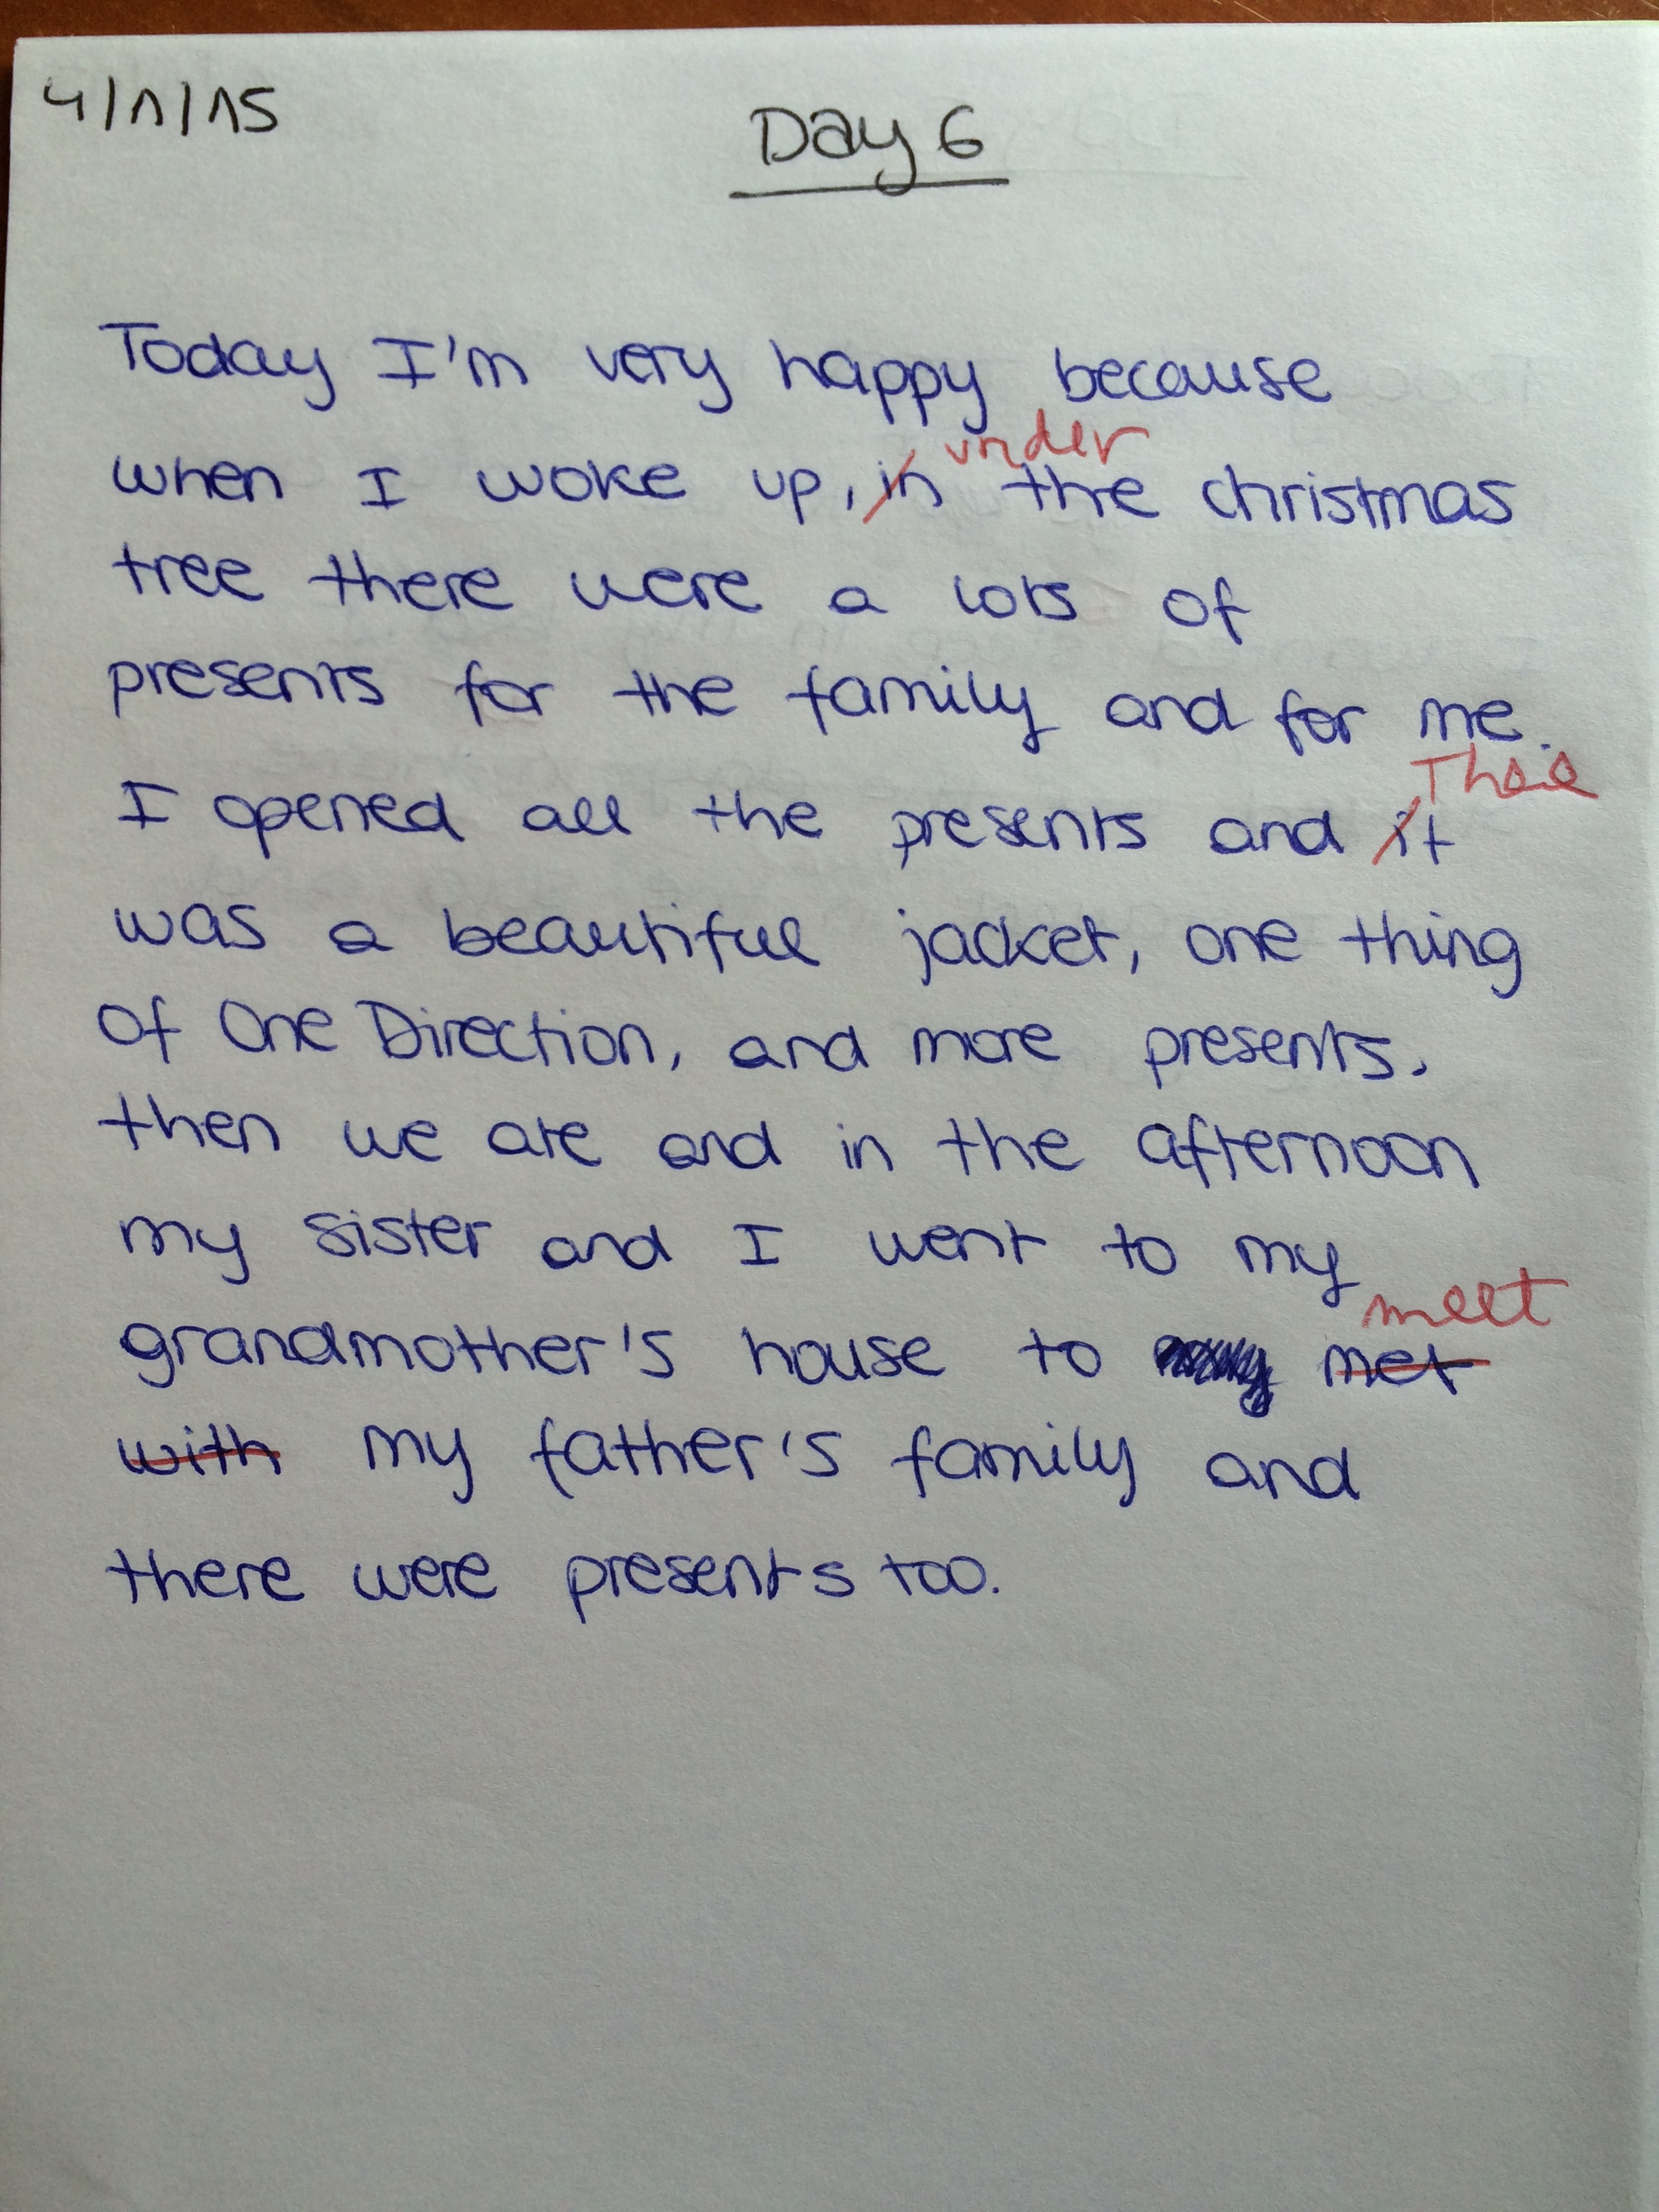 4/1/15
Day 6
Today I'm very happy because
under
when I woke up, in the christmas
tree there were a lots of
presents for the family and for me.
There
I opened all the presents and it
was a beautiful jacket, one thing
of One Direction, and more presents.
then we ate and in the afternoon
my sister and I went to my
meet
grandmother's house to met
with my father's family and
there were presents too.